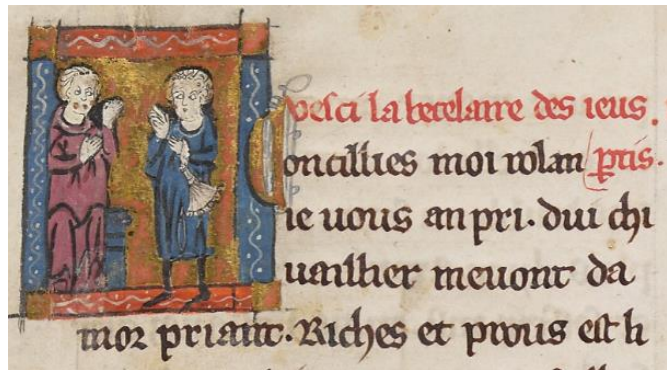 vesci la becelaire des ieus.
oncillies moi rolan ꝑtis.
ie uous an pri. dui chi
uailhier meuont da
mor priant. Riches et prous est li